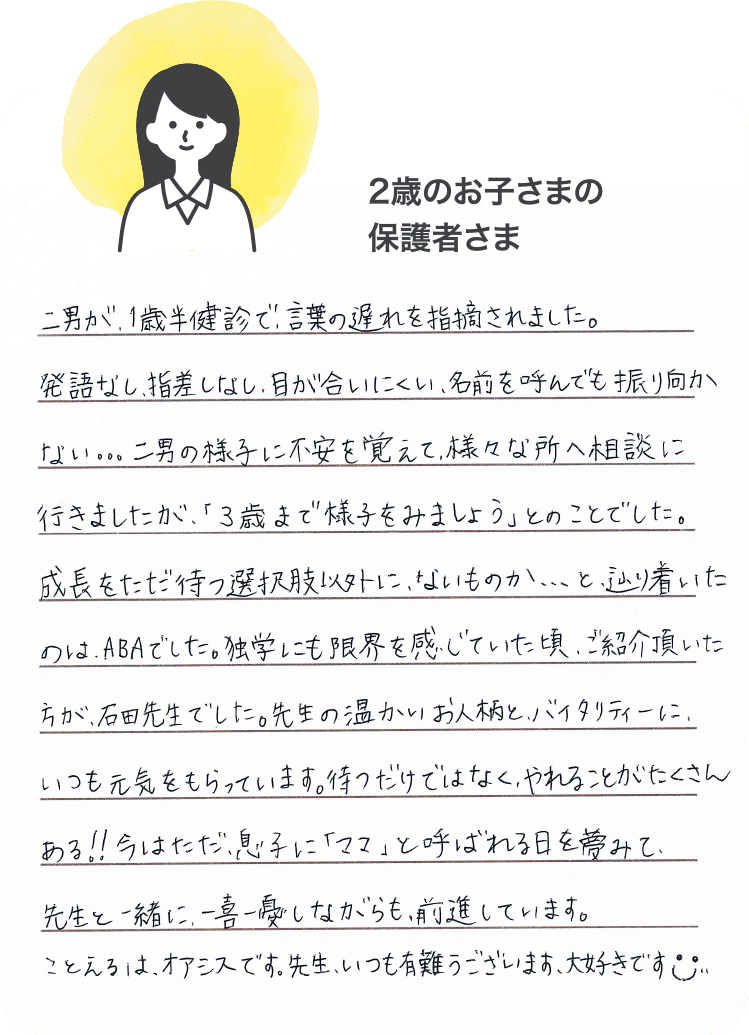 2歳のお子さまの
保護者さま
二男が、1歳半健診で、言葉の遅れを指摘されました。
発語なし、指差しなし、目が合いにくい、名前を呼んでも振り向か
ない。。。二男の様子に不安を覚えて、様々な所へ相談に
行きましたが、「3歳まで様子をみましょう」とのことでした。
成長をただ待つ選択肢以外に、ないものか、、、と、辿り着いた
のは、ABAでした。独学にも限界を感じていた頃、ご紹介頂いた
方が、石田先生でした。先生の温かいお人柄と、バイタリティーに、
いつも元気をもらっています。待つだけではなく、やれることがたくさん
ある!!今はただ、息子に「ママ」と呼ばれる日を夢みて、
先生と一緒に、一喜一憂しながらも、前進しています。
ことえるは、オアシスです。先生、いつも有難うございます、大好きです